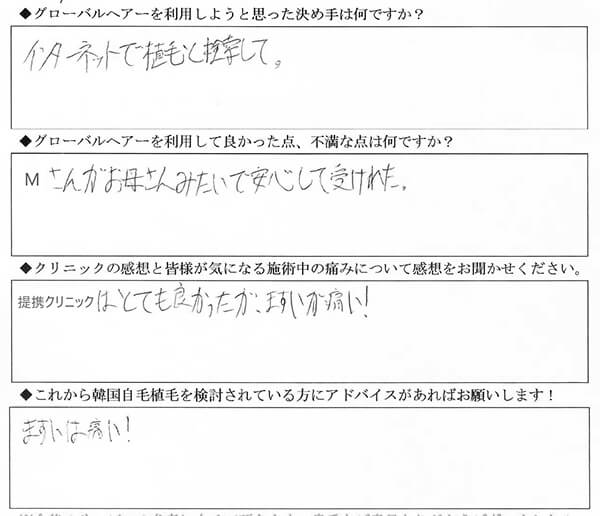 ◆グローバルヘアーを利用しようと思った決め手は何ですか？
インターネットで植毛と検索して。
◆グローバルヘアーを利用して良かった点、不満な点は何ですか？
Mさんがお母さんみたいで安心して受けれた。
◆クリニックの感想と皆様が気になる施術中の痛みについて感想をお聞かせください。
提携クリニックはとても良かったが、ますいが痛い！
◆これから韓国自毛植毛を検討されている方にアドバイスがあればお願いします！
ますいは痛い！